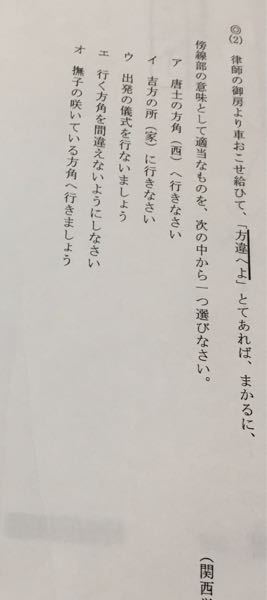 ◎(2) 律師の御房より車おこせ給ひて、「方違へよ」とてあれば、まかるに、
傍線部の意味として適当なものを、次の中から一つ選びなさい。
ア 唐土の方角(西)へ行きなさい
イ 吉方の所(家)に行きなさい
ウ 出発の儀式を行ないましょう
エ 行く方角を間違えないようにしなさい
オ 撫子の咲いている方角へ行きましょう
(関西学